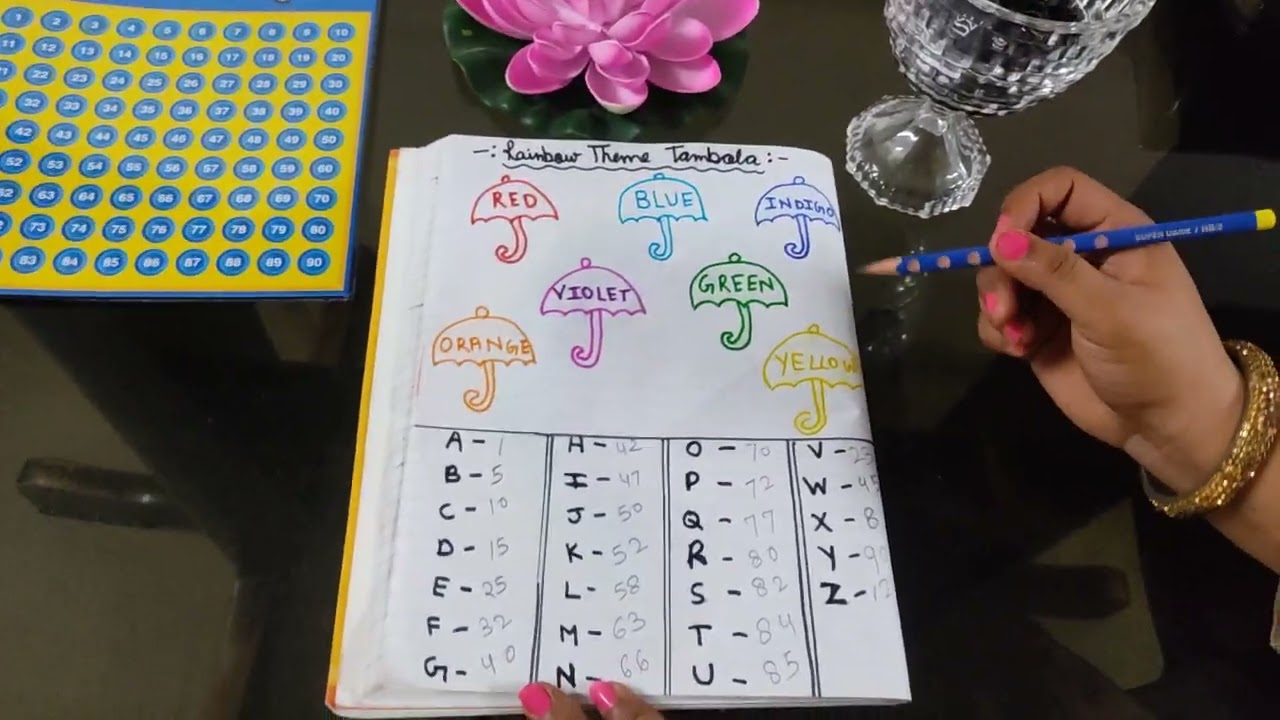 1 2 3 4 5 6 7 8 9 10
11 12 13 14 15 16 17 18 19 20
22 23 24 25 26 27 28 29 30
32 33 34 35 36 37 38 39 40
42 43 44 45 46 47 48 49 50
52 53 54 55 56 57 58 59 60
63 64 65 66 67 68 69 70
73 74 75 76 77 78 79 80
83 84 85 86 87 88 89 90
-: Rainbow Theme Tambola :-
RED BLUE INDIGO
VIOLET GREEN
ORANGE YELLOW
A - 1 H - 42 O - 70 V - 23
B - 5 I - 47 P - 72 W - 45
C - 10 J - 50 Q - 77 X - 8
D - 15 K - 52 R - 80 Y - 9
E - 25 L - 58 S - 82 Z - 12
F - 32 M - 63 T - 84
G - 40 N - 66 U - 85